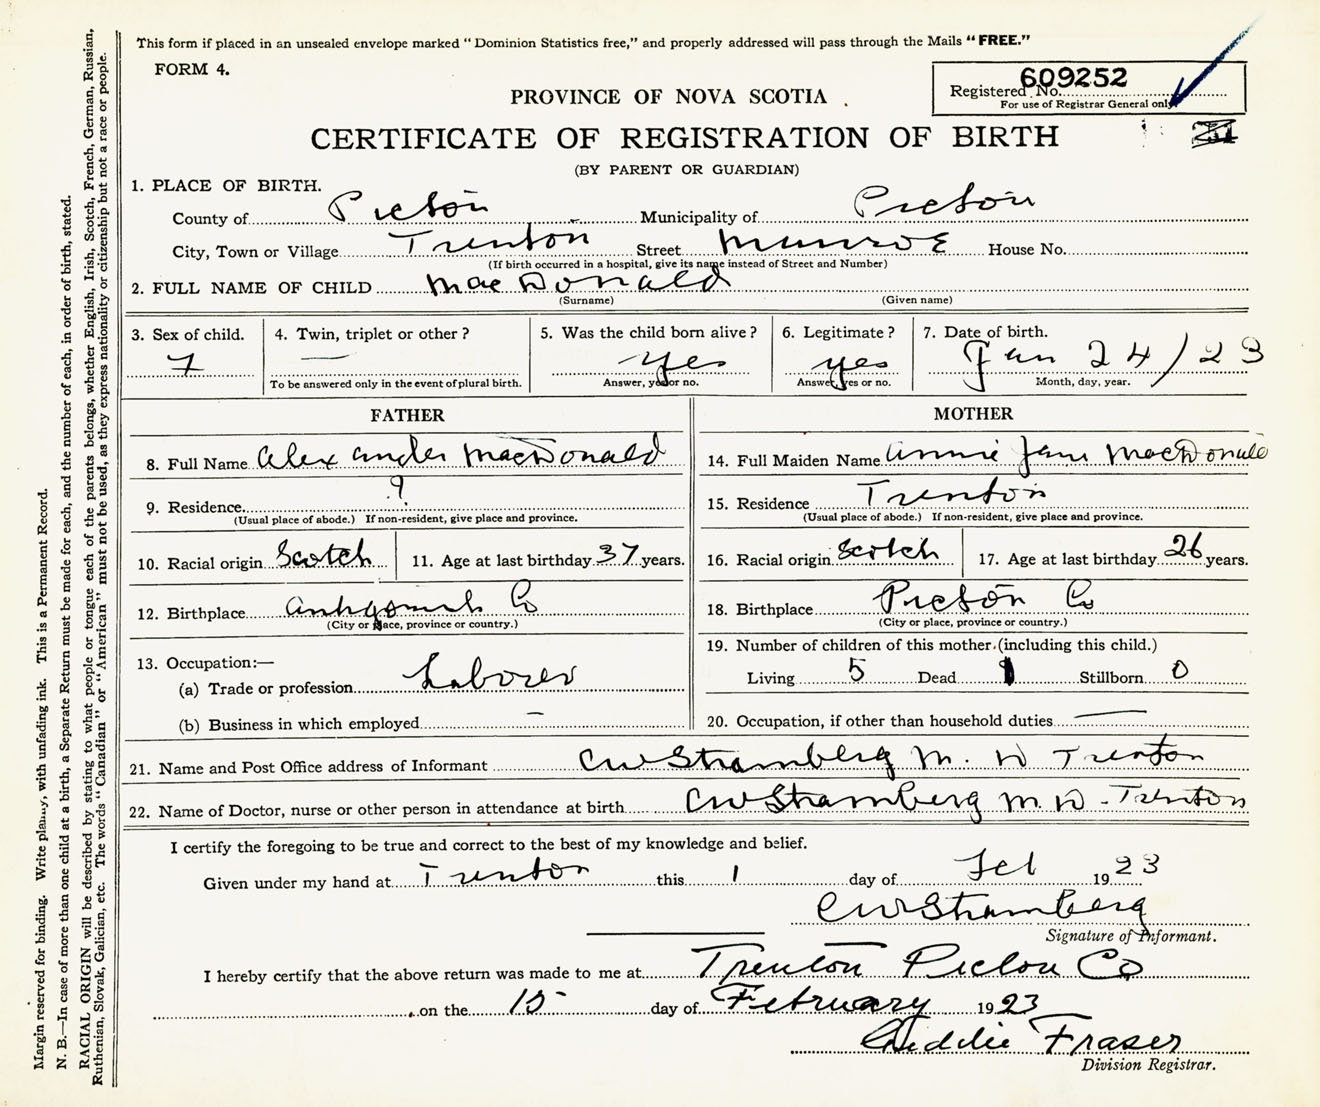 This form if placed in an unsealed envelope marked "Dominion Statistics free," and properly addressed will pass through the Mails "FREE."
FORM 4.
609252
Registered No.
For use of Registrar General only
PROVINCE OF NOVA SCOTIA
CERTIFICATE OF REGISTRATION OF BIRTH
(BY PARENT OR GUARDIAN)
1. PLACE OF BIRTH.
County of Pictou Municipality of Pictou
City, Town or Village Trenton Street Munroe House No.
(If birth occurred in a hospital, give its name instead of Street and Number)
2. FULL NAME OF CHILD MacDonald
(Surname) (Given name)
3. Sex of child. 4. Twin, triplet or other? 5. Was the child born alive? 6. Legitimate? 7. Date of birth.
F — yes yes Jan 24/23
To be answered only in the event of plural birth. Answer, yes or no. Answer, yes or no. Month, day, year.
FATHER MOTHER
8. Full Name Alexander MacDonald 14. Full Maiden Name Annie Jane MacDonald
9. Residence ? 15. Residence Trenton
(Usual place of abode.) If non-resident, give place and province. (Usual place of abode.) If non-resident, give place and province.
10. Racial origin Scotch 11. Age at last birthday 37 years. 16. Racial origin Scotch 17. Age at last birthday 26 years.
12. Birthplace Antigonish Co 18. Birthplace Pictou Co
(City or place, province or country.) (City or place, province or country.)
13. Occupation:— 19. Number of children of this mother (including this child.)
(a) Trade or profession Laborer Living 5 Dead Stillborn 0
(b) Business in which employed — 20. Occupation, if other than household duties —
21. Name and Post Office address of Informant CW Stramberg M. D Trenton
22. Name of Doctor, nurse or other person in attendance at birth CW Stramberg M. D - Trenton
I certify the foregoing to be true and correct to the best of my knowledge and belief.
Given under my hand at Trenton this 1 day of Feb 1923
CW Stramberg
Signature of Informant.
I hereby certify that the above return was made to me at Trenton Pictou Co
on the 15 day of February 1923
Fraser
Division Registrar.
Margin reserved for binding. Write plainly, with unfading ink. This is a Permanent Record.
N. B.—In case of more than one child at a birth, a Separate Return must be made for each, and the number of each, in order of birth, stated.
RACIAL ORIGIN will be described by stating to what people or tongue each of the parents belongs, whether English, Irish, Scotch, French, German, Russian,
Ruthenian, Slovak, Galician, etc. The words "Canadian" or "American" must not be used, as they express nationality or citizenship but not a race or people.